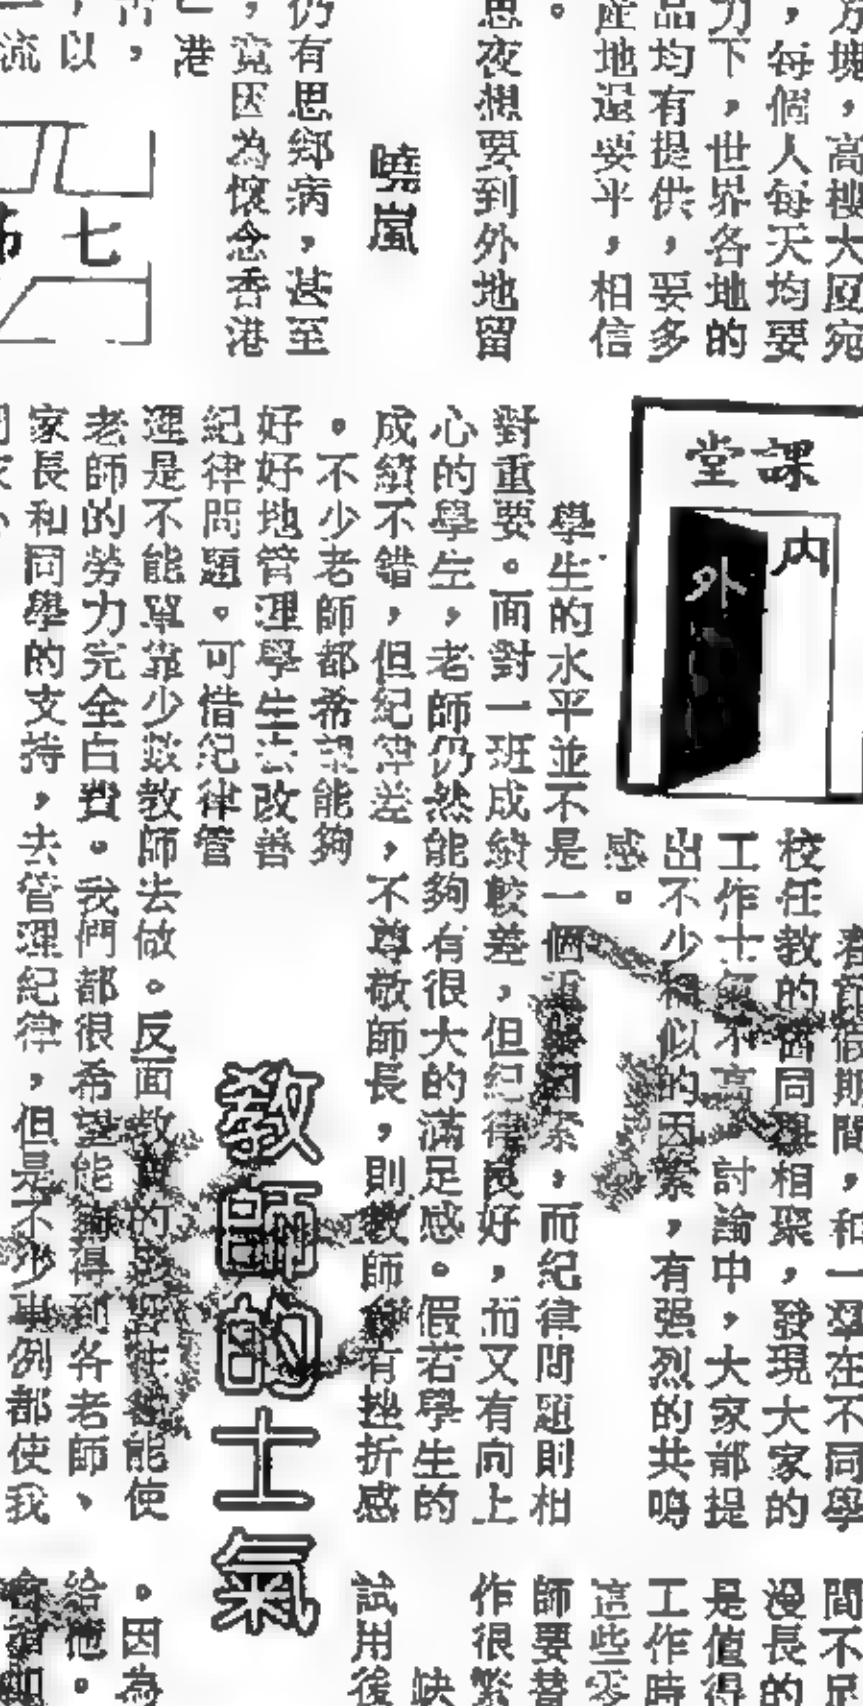 塊，高樓大厦宛
，每個人每天均要
力下，世界各地的
品均有提供，要多
產地還要平，相信
。
思夜想要到外地留
曉嵐
仍有思鄉病，甚至
，竟因為懷念香港
港
，
，以
流
七
課堂
內
外
春節假期間，和一羣在不同學
校任教的舊同學相聚，發現大家的
工作士氣不高。討論中，大家都提
出不少相似的因素，有强烈的共鳴
感。
教師的士氣
學生的水平並不是一個重要因素，而紀律問題則相
對重要。面對一班成績較差，但紀律良好，而又有向上
心的學生，老師仍然能夠有很大的滿足感。假若學生的
成績不錯，但紀律差，不尊敬師長，則教師會有挫折感
。不少老師都希望能夠
好好地管理學生去改善
紀律問題。可惜紀律管
理是不能單靠少數教師去做。反面教員的能使
老師的勞力完全白費。我們都很希望能夠得到各老師、
家長和同學的支持，去管理紀律，但是不少事例都使我
間不足
漫長的
是值得
工作時
這些零
師要替
作很繁
缺
試用後
。因為
給他。